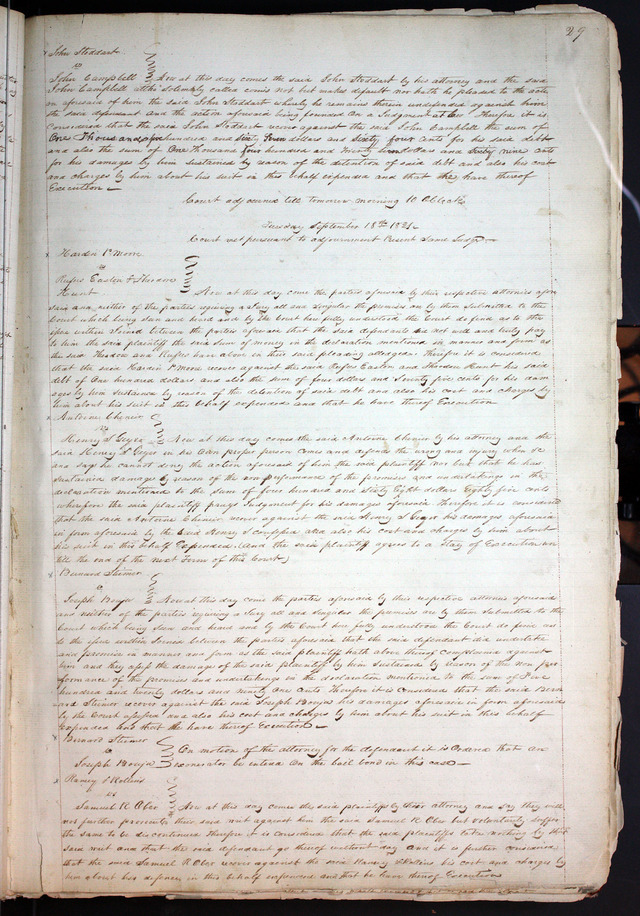 29
John Stoddart
vs
John Campbell Now at this day comes the said John Stoddart by his attorney and the said
John Campbell altho solemnly called comes not but makes default nor hath he pleaded to the
aforesaid of him the said John Stoddart whereby he remains therein undefended against him
the said defendant and the action aforesaid being founded on a Judgment Therefore it is
Considered that the said John Stoddart recover against the said John Campbell the sum of
One Thousand hundred and sixty dollars and Sixty four cents for his said debt
and also the sum of One Thousand four hundred and twenty dollars and Sixty nine cents
for his damages by him sustained by reason of the detention of said debt and also his cost
and charges by him about his suit in this behalf expended and that he have thereof
Execution
Court adjourned till tomorrow morning 10 OClock
Tuesday September 18th 1821
Court met pursuant to adjournment Present Same Judge
Hardin P Moore
vs
Rufus Easton & Thadeou
Hunt Now at this day come the parties aforesaid by their respective attornies afore
said and neither of the parties requiring a Jury all and singular the premises are by them submitted to the
Court which being seen and heard and by the Court here fully understood the Court do find as to the
issue within Joined between the parties aforesaid that the said defendants did not well and truly pay
to him the said plaintiff the said sum of money in the declaration mentioned in manner and form as
the said and Rufus have above in their said pleading alledged Therefore it is considered
that the said Hardin P Moore recover against the said Rufus Easton and Hunt his said
debt of One hundred dollars and also the sum of four dollars and Seventy five cents for his dam
ages by him sustained by reason of the detention of said debt and also his cost and charges by
him about his suit in this behalf expended and that he have thereof Execution
Antoine Chenier
vs
Henry S Geyer Now at this day comes the said Antoine Chenier by his attorney and the
said Henry S Geyer in his Own proper person comes and defends the wrong and injury when &c
and says he cannot deny the action aforesaid of him the said plaintiff nor but that he has
Sustained damages by reason of the non performance of the promises and undertakings in the
declaration mentioned to the sum of four hundred and Sixty Eight dollars Eighty five cents
wherefore the said plaintiff prays Judgment for his damages aforesaid Therefore it is considered
that the said Antoine Chenier recover against the said Henry S Geyer his damages aforesaid
in form aforesaid by the Said Henry S confessed and also his cost and charges by him about
his suit in this behalf Expended (And the said plaintiff agrees to a Stay of Execution
till the end of the next Term of this Court)
Bernard Steimer
vs
Joseph Bouju Now at this day come the parties aforesaid by their respective attornies aforesaid
and neither of the parties requiring a Jury all and singular the premises are by them submitted to the
Court which being seen and heard and by the Court here fully understood the Court do find as
to the issue within Joined between the parties aforesaid that the said defendant did undertake
and promise in manner and form as the said plaintiff hath above thereof complained against
him and they assess the damage of the said plaintiff by him Sustained by reason of the non per
formance of the promises and undertakings in the declaration mentioned to the sum of Five
hundred and twenty dollars and ninety One cents Therefore it is Considered that the said Bern
ard Steimer recover against the said Joseph Bouju his damages aforesaid in form aforesaid
by the Court assessed and also his cost and charges by him about his suit in this behalf
Expended and that he have thereof Execution
Bernard Steimer
vs
Joseph Bouju On motion of the attorney for the defendant it is Ordered that an
exonerator be entered On the bail bond in this case
Ranney & Rollins
vs
Samuel R Ober Now at this day comes the said plaintiffs by their attorney and say they will
not further prosecute their said suit against him the said Samuel R Ober but voluntarily suffer
the same to be discontinued Therefore it is considered that the said plaintiffs take nothing by their
said writ and that the said defendant go thereof without day and it is further considered
that the said Samuel R Ober recover against the said Ranney & Rollins his cost and charges by
him about his defence in this behalf expended and that he have thereof Execution